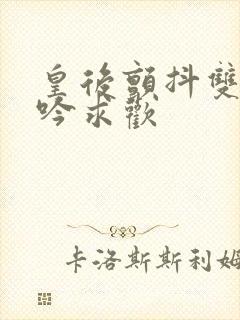 皇後顫抖雙
吟求歡
卡洛斯斯利姆